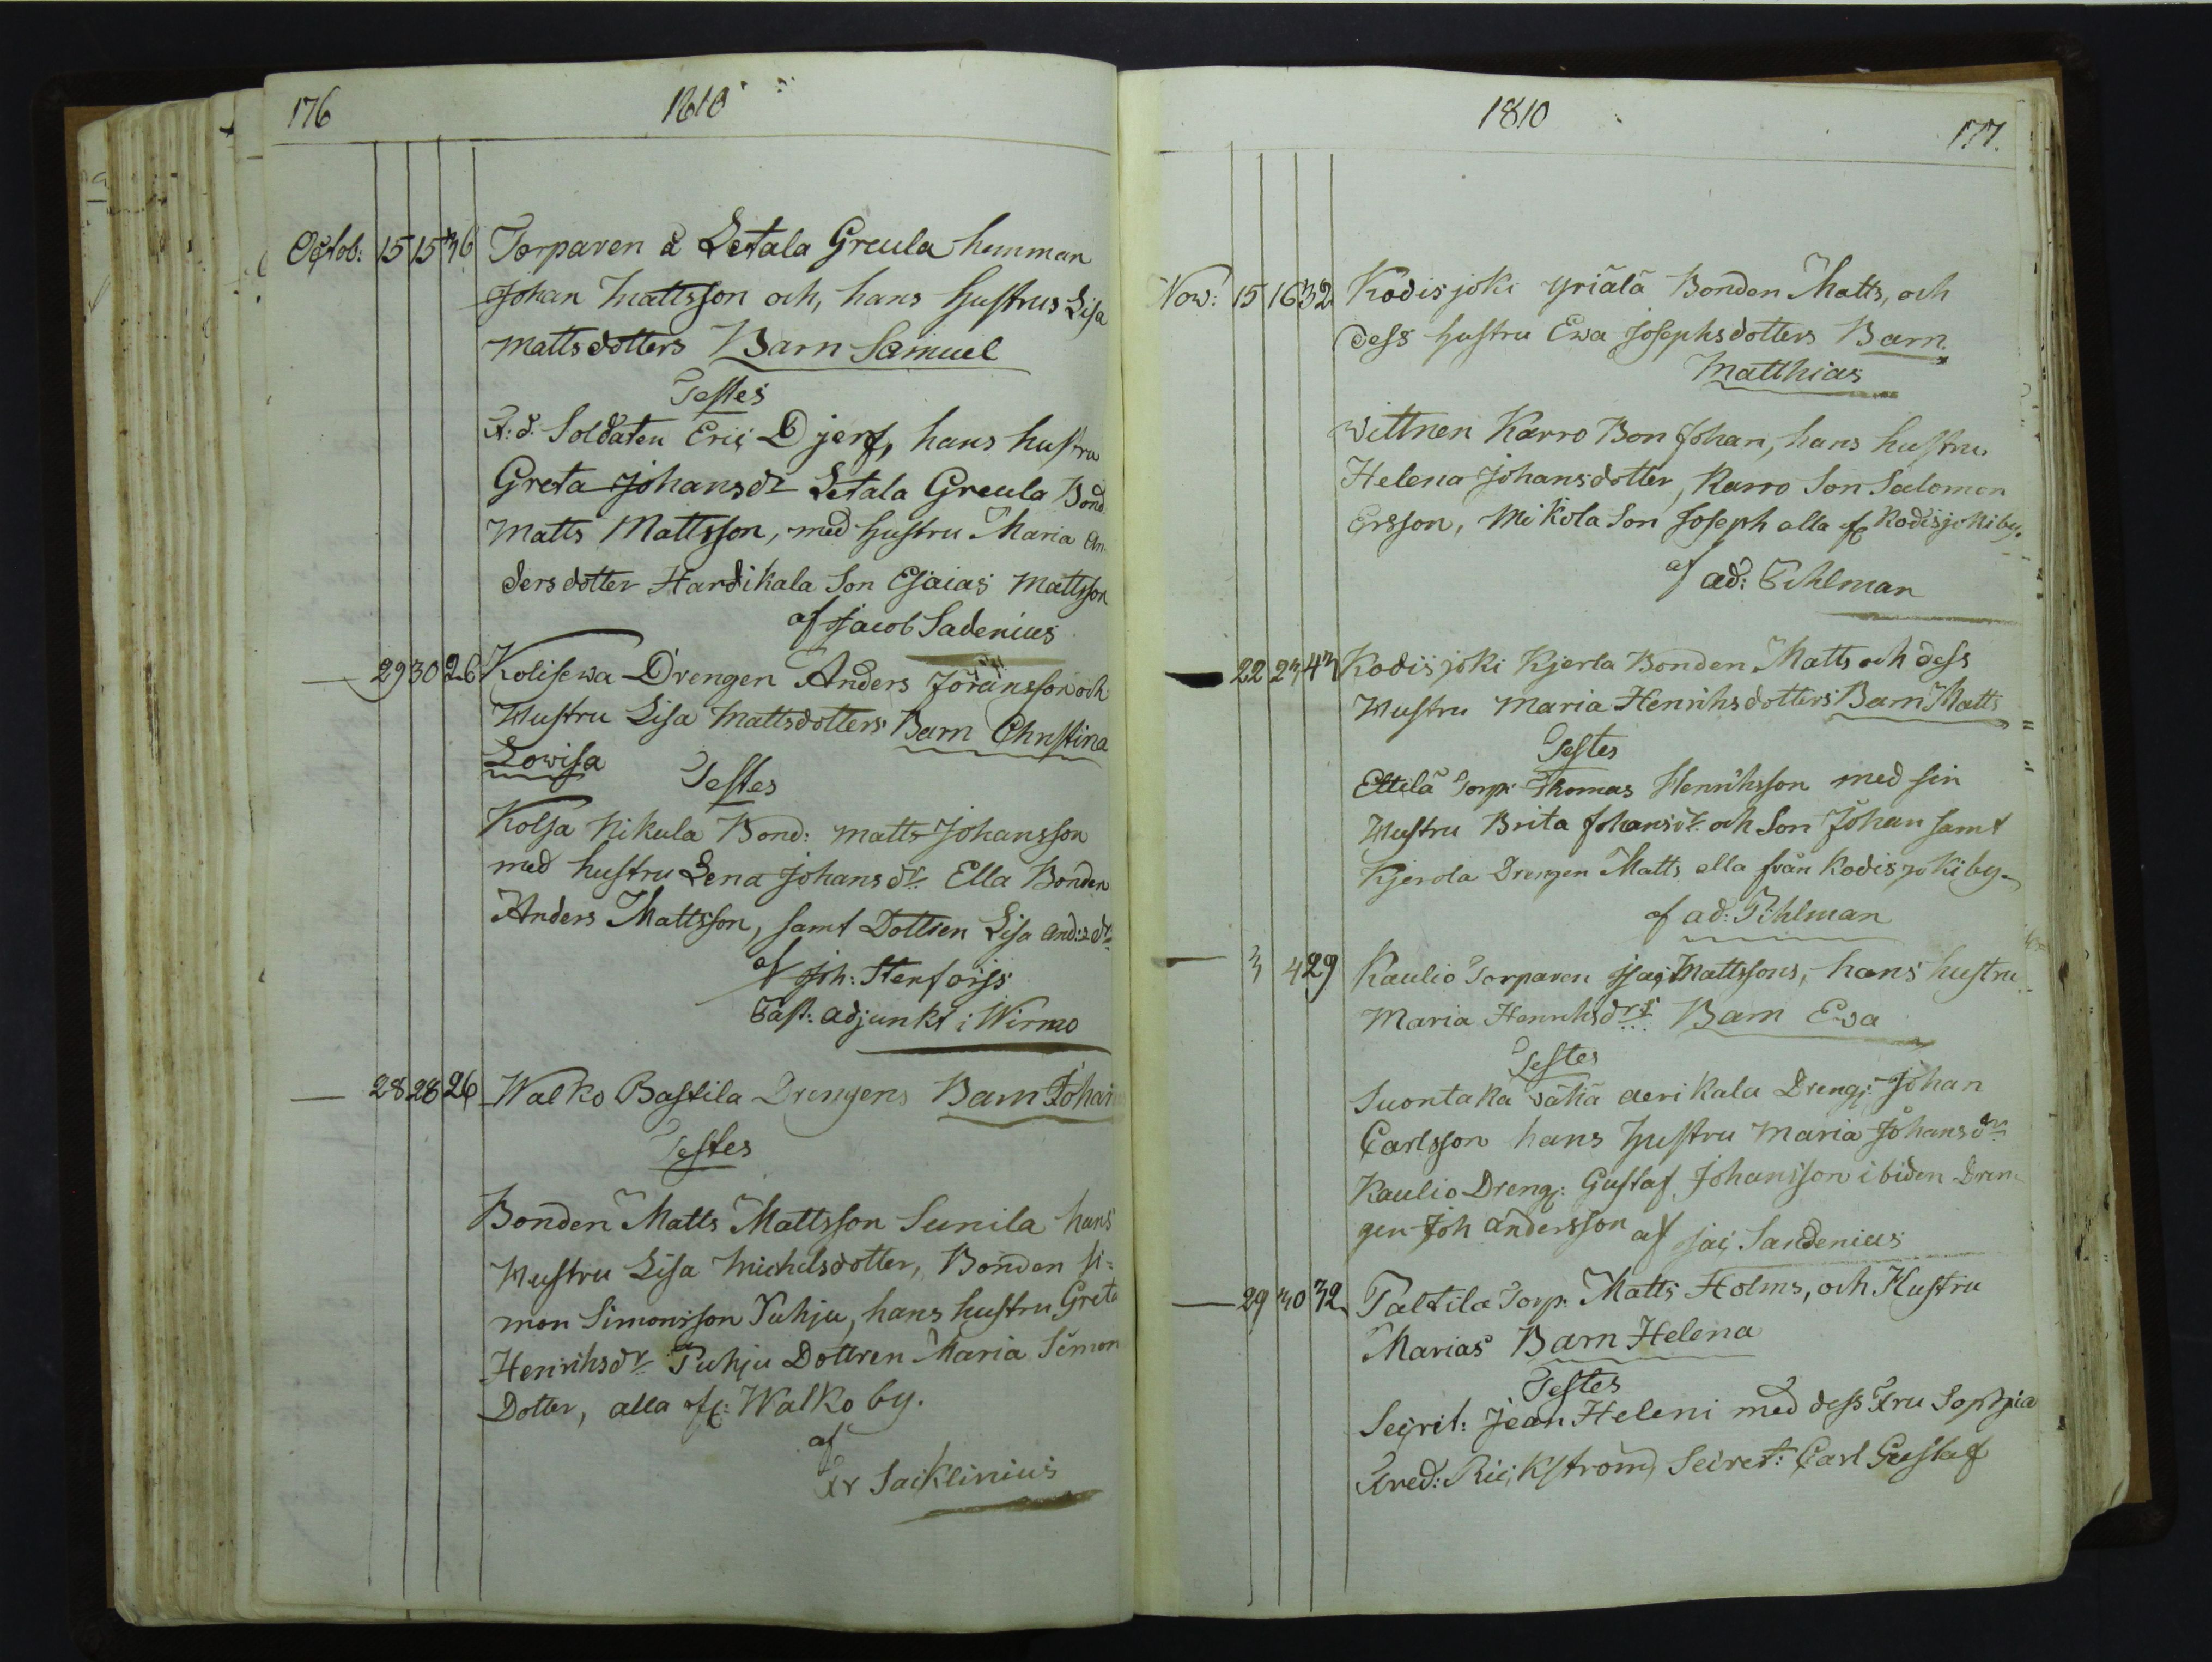 176
1810
Octob: 15 15 36 Torparen å Letala Greula hemman
Johan Mattsson och, hans hustrus Lisa
Mattsdotters Barn Samuel
Testes
A: d: Soldaten Eric Djerf, hans hustru
Greta Johansdr Letala Greula Bond
Matts Mattsson, med hustru Maria An
dersdotter Hardikala Son Esaias Mattsson
af Jacob Sadenius
— 29 30 26 Kolisewa Drengen Anders Joransson och
Hustru Lisa Mattsdotters Barn Christina
Lowisa Testes
Kolsa Nikula Bond: Matts Johansson
med hustru Lena Johansdr Ella Bonden
Anders Mattsson, samt Dottren Lisa And:sdr
af Joh: Stenforss
Past: adjunkt i Wirmo
— 28 28 26 Walko Bastila Drengens Barn Johan
Testes
Bonden Matts Mattsson Sunila hans
Hustru Lisa Michelsdotter, Bonden Si=
mon Simonsson Puhju, hans hustru Greta
Henrihsdr Puhju Dottren Maria Simon
Dotter, alla af: Walko by.
af
Fr Sacklinius
1810
177.
Now: 15 16 32 Kodisjoki Yriälä Bonden Matts, och
dess hustru Ewa Josephsdotters Barn
Matthias
Wittnen Karro Bon Johan, hans hustru
Helena Johansdotter, Karro Son Salomon
Ersson, Mikola Son Joseph alla af Kodisjoki by.
af ad: Pihlman
— 22 23 43 Kodisjoki Kjerla Bonden Matts och dess
Hustru Maria Henrihsdotters Barn Matts
Testes
Ettilä Torp: Thomas Henrihsson med sin
Hustru Brita Johansdr och Son Johan samt
Kjerola Drengen Matts alla från Kodisjoki by.
af ad: Pihlman
— 3 4 29 Kaulio Torparen Isac Mattssons, hans hustru
Maria Henrihsdrs Barn Ewa
Testes
Suontaka wähä aerikala Dreng: Johan
Carlsson hans hustru Maria Johansdr
Kaulio Dreng: Gustaf Johansson ibiden Dren
gen Joh Andersson af Jac Sardenius
— 29 30 32 Paltila Torp: Matts Holms, och Hustru
Marias Barn Helena
Testes
Secrit: Jean Heleni med dess Fru Sophia
Fred: Rickström, Secret: Carl Gustaf